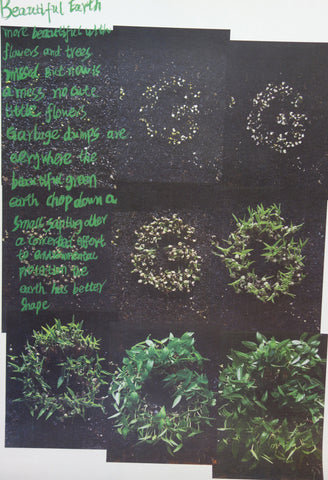 Beautiful Earth
more beautiful with
flowers and trees
missed, but now is
a mess, no cute
little flowers.
Garbage dumps are
everywhere the
beautiful green
earth chop down a
small sapling after
a concerted effort
to environmental
protection the
earth has better
shape